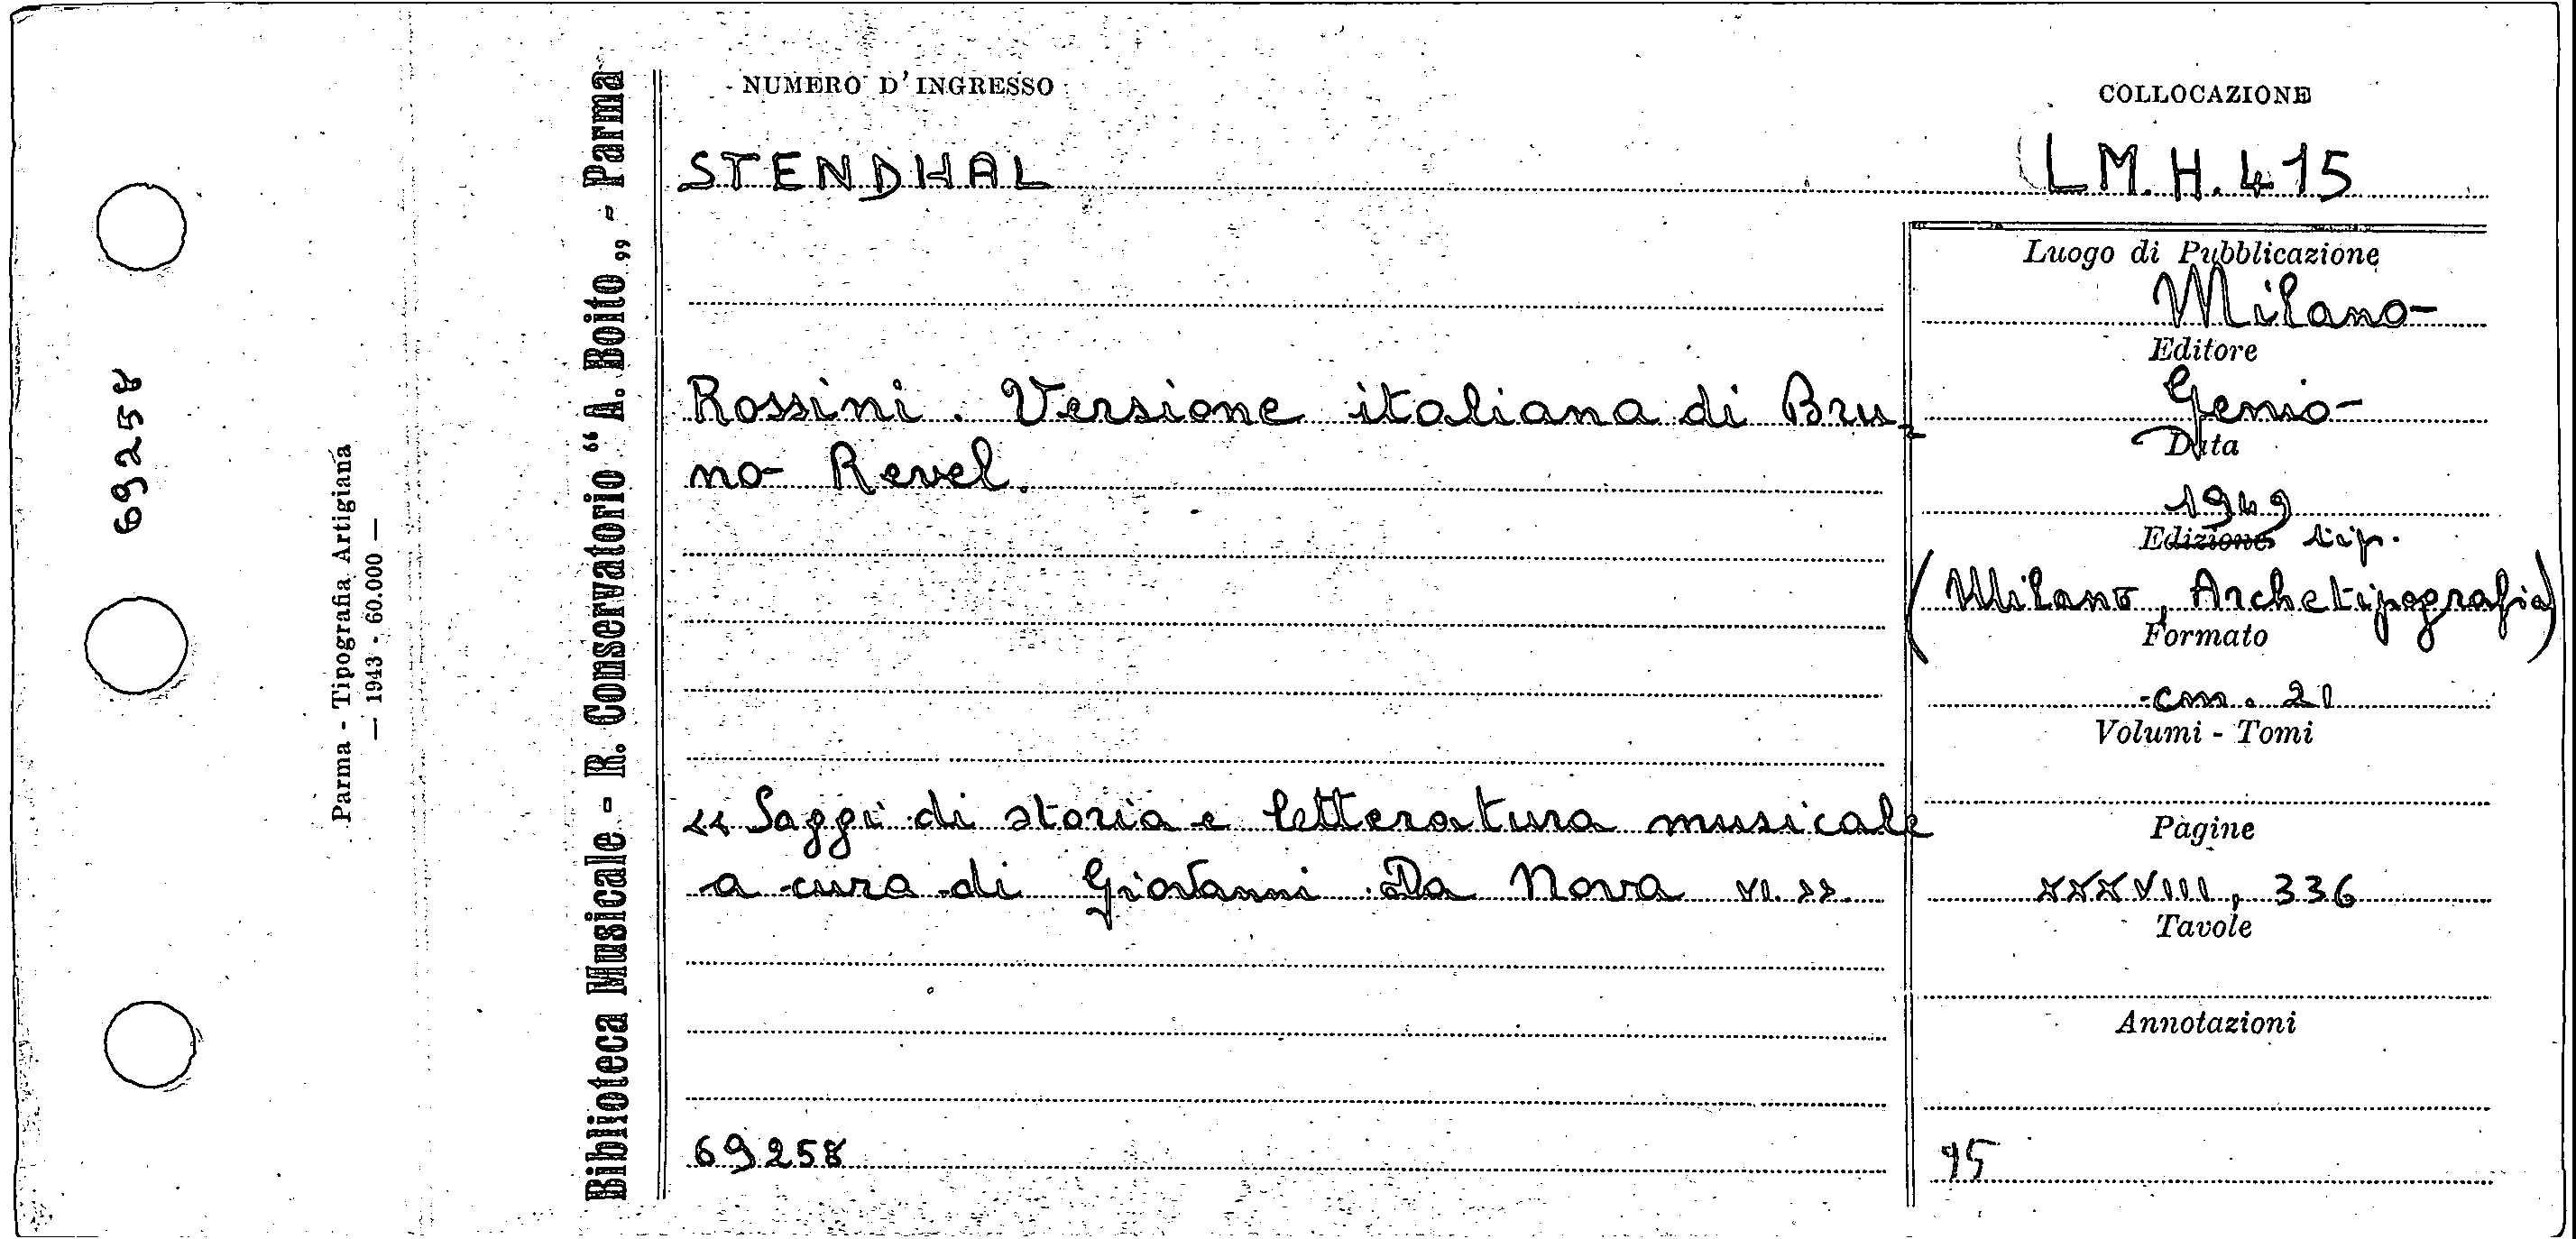 NUMERO D'INGRESSO
COLLOCAZIONE
STENDHAL
LM.H.415
Luogo di Pubblicazione
Milano
Editore
Genio
Data
1949
Edizione tip.
(Milano, Archetipografia)
Formato
cm. 21
Volumi - Tomi
Pagine
XXXVIII, 336
Tavole
Annotazioni
Rossini. Versione italiana di Bru-
no Revel.
«Saggi di storia e letteratura musicale
a cura di Giovanni Da Nova VI».
69258
Biblioteca Musicale - R. Conservatorio “A. Boito„ - Parma
Parma - Tipografia Artigiana
— 1943 - 60.000 —
69258